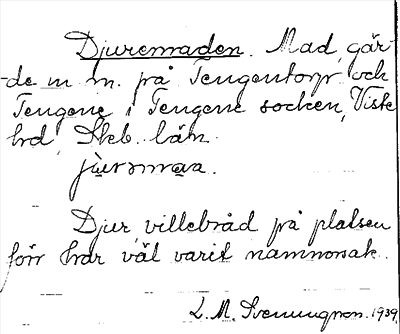 Djuremaden. Mad, gär-
de m m. på Tengentorp och
Tengene i Tengene socken, Viste
hd, Skb. län.
Djur, villebråd på platsen
förr har väl varit namnorsak.
L. M. Svenungson. 1939.